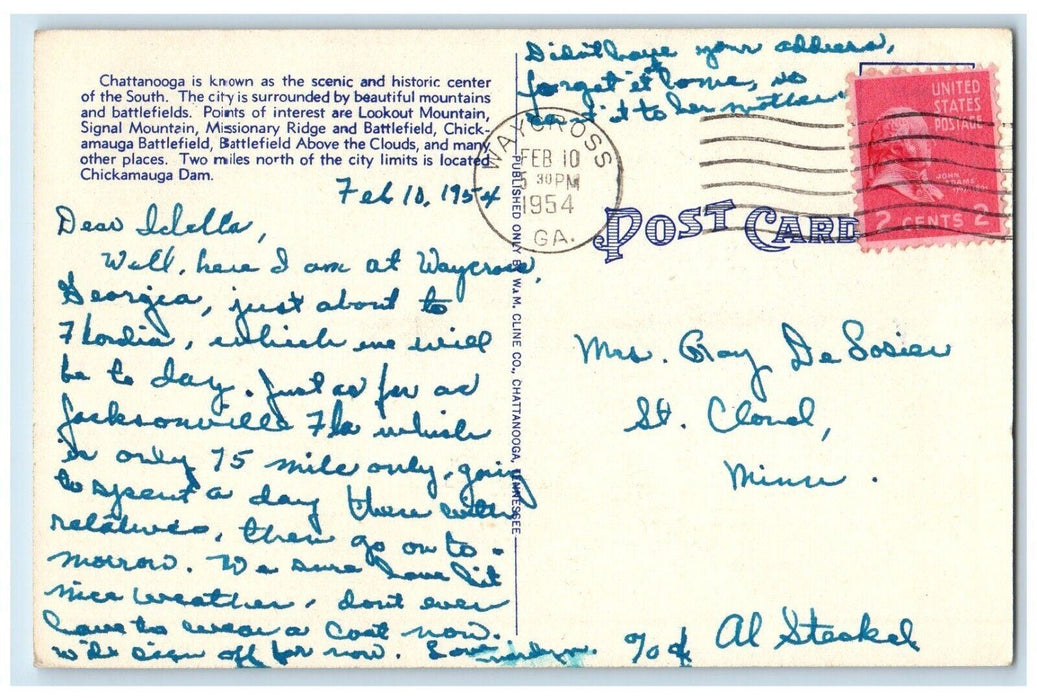 Chattanooga is known as the scenic and historic center
of the South. The city is surrounded by beautiful mountains
and battlefields. Points of interest are Lookout Mountain,
Signal Mountain, Missionary Ridge and Battlefield, Chick-
amauga Battlefield, Battlefield Above the Clouds, and many
other places. Two miles north of the city limits is located
Chickamauga Dam.
Feb 10, 1954
Dear Idella,
Well, here I am at Waycross,
Georgia, just about to
Flordia, which we will
be to day. Just as far as
Jacksonville Fla which
is only 75 mile only, going
to spent a day there with
relatives, then go on to-
morrow. We sure have hit
nice weather, dont even
have to wear a coat now.
will sign off for now. Love
PUBLISHED ONLY BY W.M. CLINE CO., CHATTANOOGA, TENNESSEE
Didn't have your address,
forget it home, so
sent it to her mother
WAYCROSS
FEB 10
5 30 PM
1954
GA.
UNITED
STATES
POSTAGE
JOHN
ADAMS
2 CENTS 2
POST CARD
Mrs. Ray DeSosier
St. Cloud,
Minn.
c/o of Al Steckel